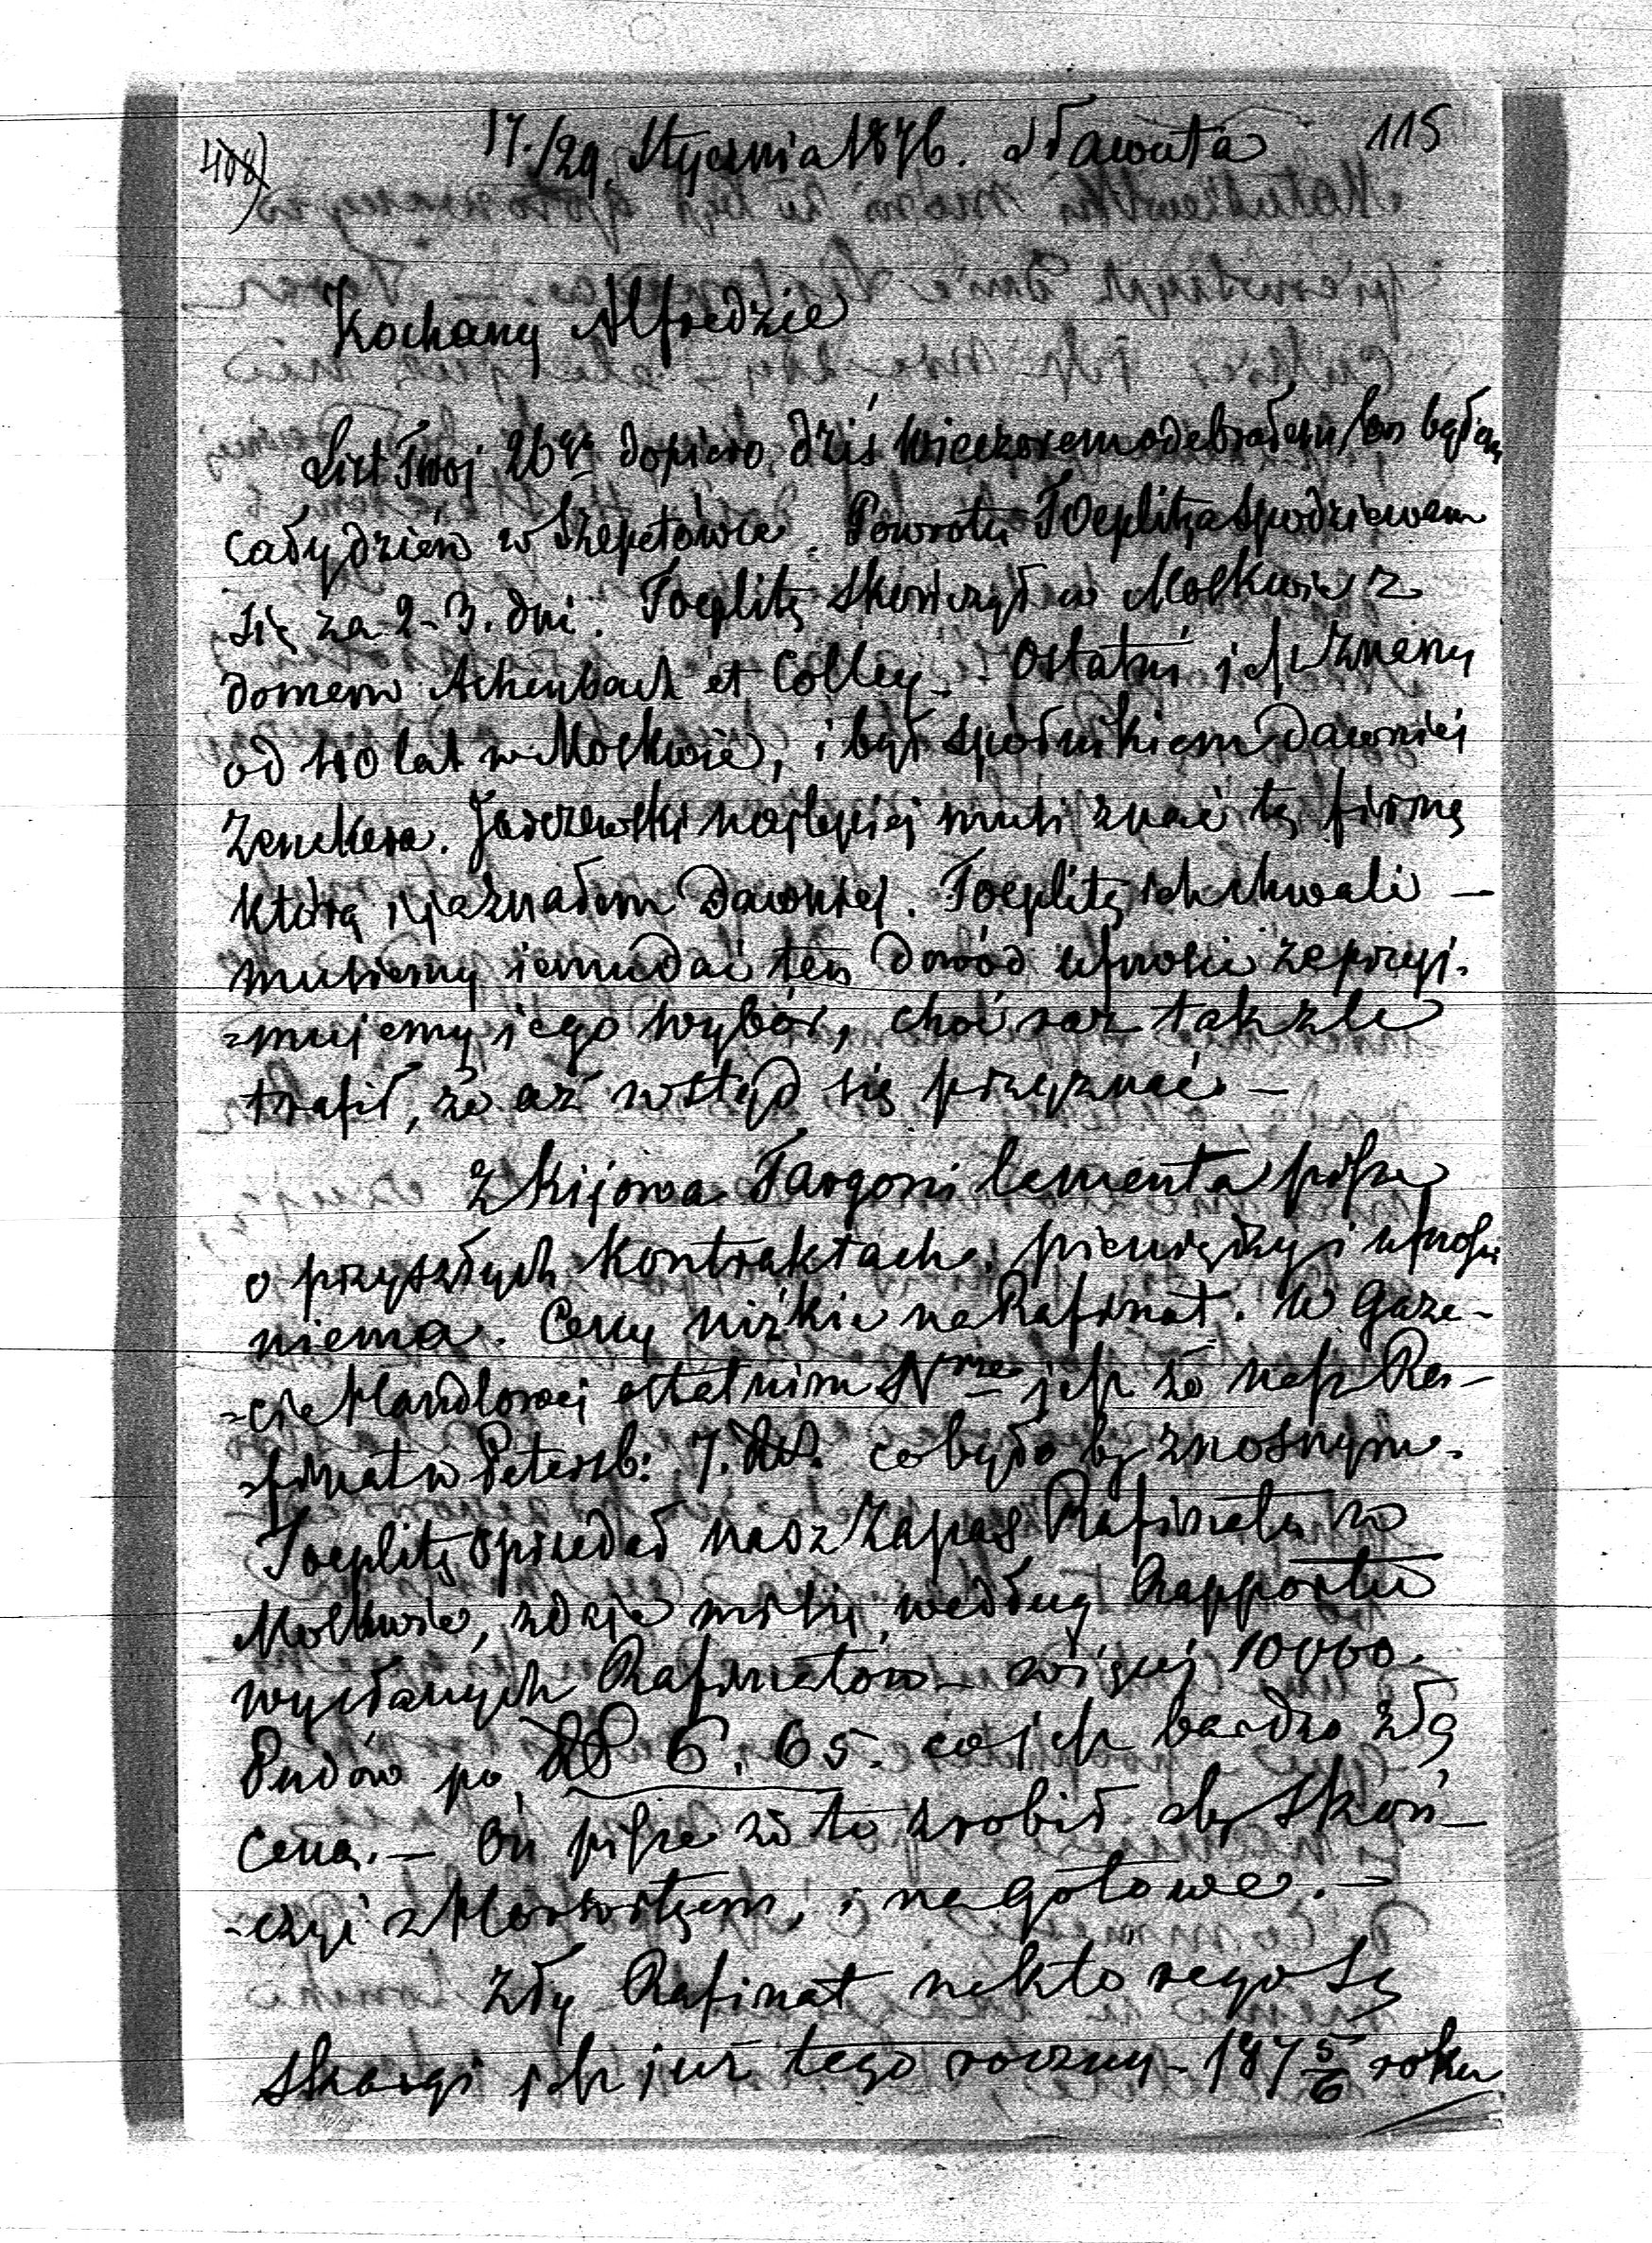 408) 17./29. Stycznia 1876. Sławuta 115
Kochany Alfredzie
List Twoj 26go dopiero dziś wieczorem odebrałem bo byłem
cały dzień w Szepetowce. Powrotu Toeplitza spodziewam
się za 2-3. dni. Toeplitz skończył w Moskwie z
domem Achenbach et Colley. Ostatni jest znany
od 40 lat w Moskwie, i był spólnikiem dawniej
Zenkera. Jarczewski najlepiej musi znać tę firmę
którą i ja znałem dawniej. Toeplitz ich chwali —
musiemy jemu dać ten dowód ufności że przyj-
=mujemy jego wybór, choć raz tak źle
trafił, że aż wstyd się przyznać —
Z Kijowa Targoni lamenta pisze
o przyszłych Kontraktach, pieniędzy i ufności
niema. Ceny nizkie na Rafinat. W Gaze-
=cie Handlowej ostatnim Nrze jest że nasz Ra-
=finat w Petersb: 7. co było by znosnym.
Toeplitz sprzedał nasz zapas Rafinatu w
Moskwie, zdaje mi się, według Rapportu
wysłanych Rafinatów — więcej 10000.
Pudów po 6. 65. co jest bardzo złą
ceną. — On pisze że to zrobił aby skoń-
-czyć z Horwitzem, i na gotowe. —
Zły Rafinat na którego są
skargi jest już tego roczny — 187 5/6 roku